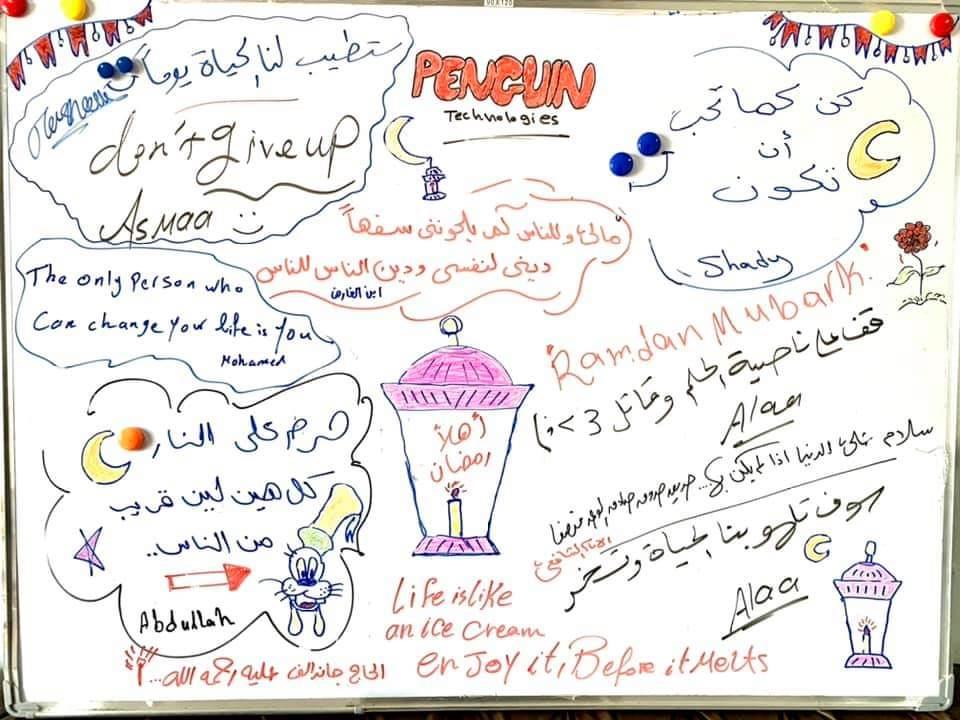 90X120
ستطيب لنا الحياة يوماً
don't give up
Asmaa
PENGUIN
Technologies
كن كما تحب
أن
تكون
Shady
مالي وللناس كم يلحونني سفهاً
ديني لنفسي ودين الناس للناس
ابن الفارض
The only Person who
Can change your life is you
Mohamed
Ramdan Mubark
قف على ناصية الحلم وقاتل <3
Alaa
حرم على النار
كل هين لين قريب
من الناس..
Abdullah
أهلاً
رمضان
سلام على الدنيا اذا لم يكن بها... صديق صدوق صادق الوعد منصفا
الامام الشافعي
سوف تلهو بنا الحياة وتسخر
Alaa
Life is like
an ice cream
enjoy it, Before it Melts
الحاج جلال الف عليه رحمة الله...